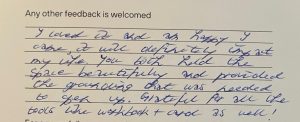 Any other feedback is welcomed
I loved it and am happy I
came, it will definitely impact
my life. You both held the
space beautifully and provided
the grounding that was needed
to open up. Grateful for all the
tools like workbook + card as well!